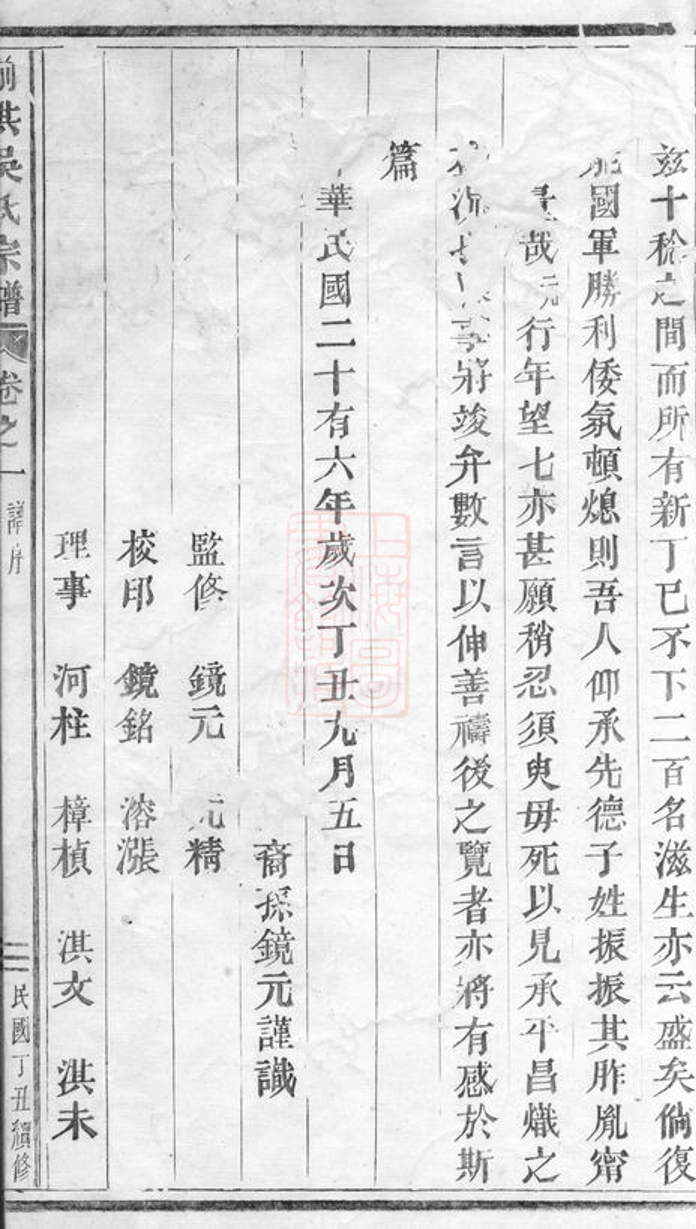 茲十稔之間而所有新丁已不下二百名滋生亦云盛矣倘復
國軍勝利倭氛頓熄則吾人仰承先德子姓振振其胙胤甯
量哉元行年望七亦甚願稍忍須臾毋死以見承平昌熾之
事將竣弁數言以伸善禱後之覽者亦將有感於斯
篇
華民國二十有六年歲次丁丑九月五日
裔孫鏡元謹識
監修 鏡元 元精
校印 鏡銘 溶漲
理事 河柱 樟楨 淇文 淇未
淇吳氏宗譜 卷之一 譜序 二 民國丁丑續修